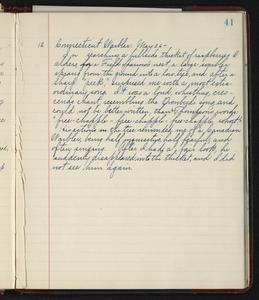 41
12 Connecticut Warbler, May 24 -
In searching a hillside thicket of raspberry &
alders for a Field Sparrow's nest, a large warbler
sprang from the ground into a low tree, and after a
sharp "peek," surprised me with a most extra-
ordinary song. It was a loud, whistling, cres-
cendo chant resembling the Ovenbird's song and
could not be better written, than Thompson's words
"free-chapple - free-chapple - free-chapple, whoit"
in the tree reminded me of a Canadian
Warbler, being half inquisitive, half fearful, and
often singing. After I had a fair look, he
suddenly disappeared into the thicket, and I did
not see him again.